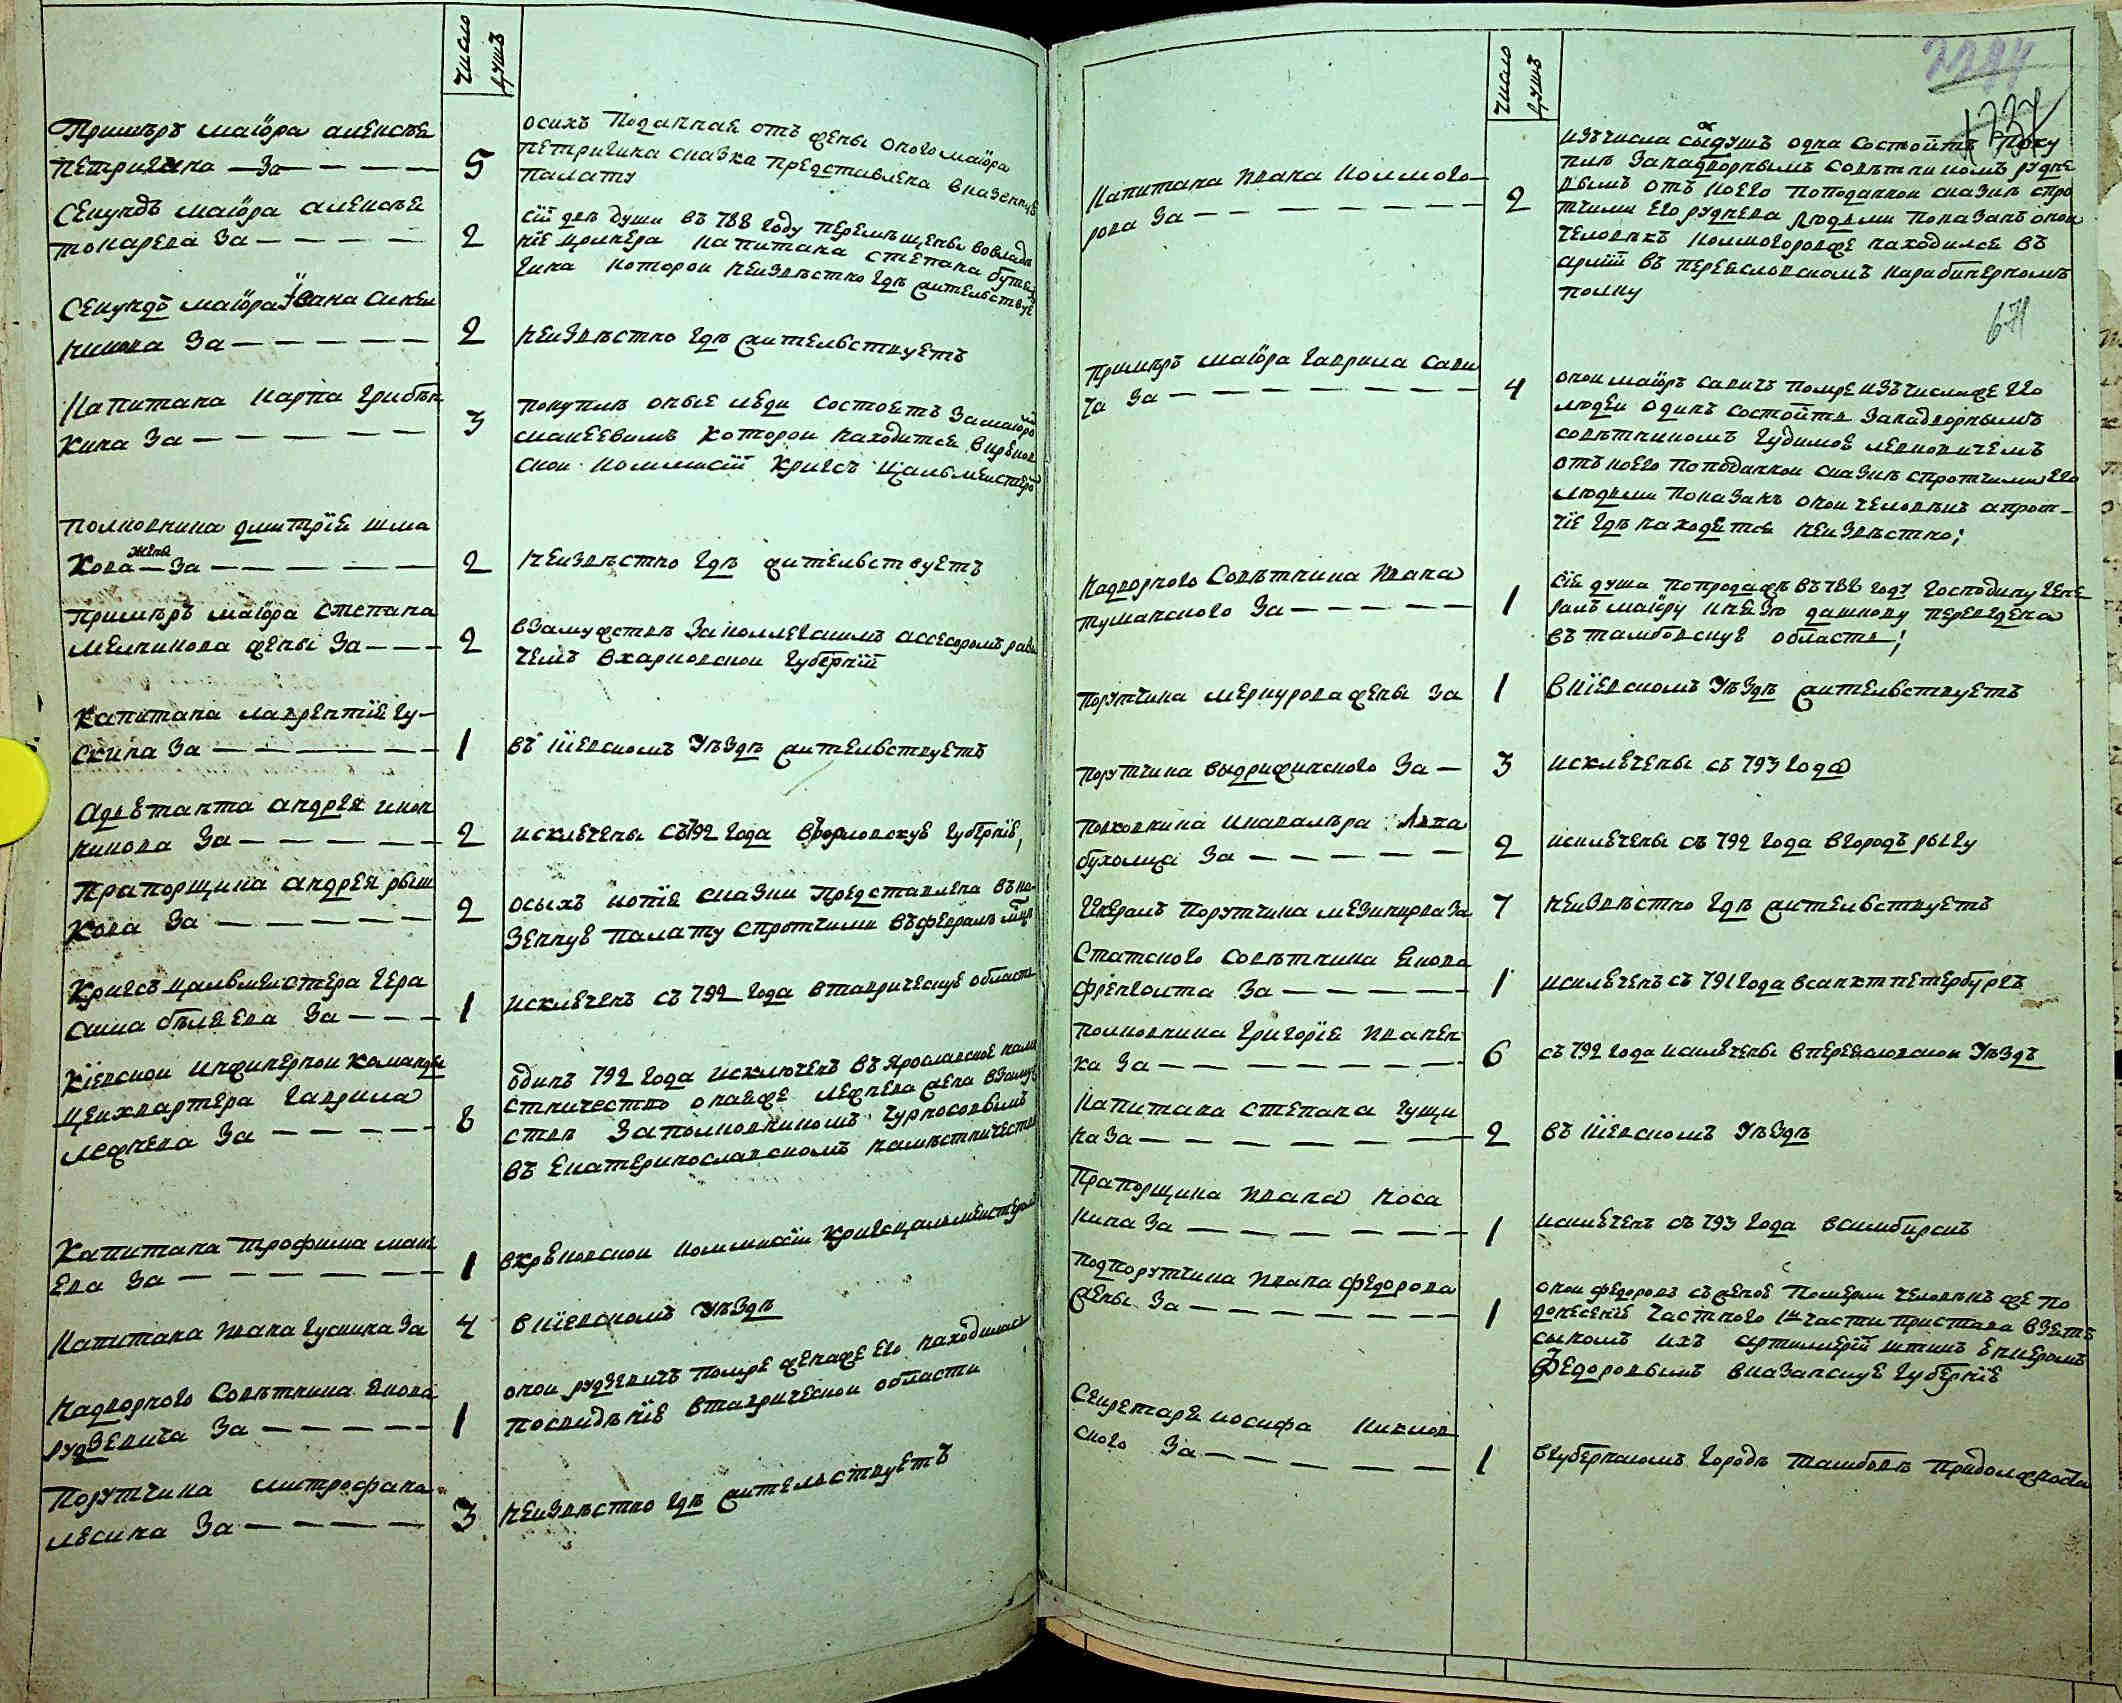 число
душъ
Примьеръ маіора алексѣя
петричина — За — — — — 5
осихъ поданная отъ жены оного маіора
петричина сказка представлена вказенную
палату
Секундъ маіора алексѣя
токарева За — — — — 2
сіи двѣ души въ 788 году перемѣщены вовладѣ
ніе
капитана степана
которои неизвѣстно гдѣ жительствуетъ
Секундъ маіора Ивана
За — — — — — 2
неизвѣстно гдѣ жительствуетъ
Капитана карпа грибѣн
кина За — — — — — 3
покупкѣ оные люди состоятъ замаіоромъ
которои находится вкрюков
скои коммисіи кригсъ цалмеистеромъ
полковника дмитрія шма
кова жена За — — — — — 2
неизвѣстно гдѣ жительствуетъ
Примьеръ маіора степана
мелникова жены За — — — 2
взамужствѣ заколлегскимъ ассесоромъ
вхарковскои губерніи
капитана лаврентія гу
скина За — — — — — 1
въ кіевскомъ уѣздѣ жительствуетъ
Адьютанта андрея икон
никова За — — — — — 2
исключены съ 792 года ворловскую губернію,
Прапорщика андрея рыш
кова За — — — — — 2
осыхъ копіи сказки представлена въка
зенную палату спротчими въфевралѣ мцѣ
Кригсъ цалмеистера гера
сима бѣляева За — — — 1
исключенъ съ 792 года втаврическую область
Кіевскои инженернои команды
цеихвартера гаврила
лежнева За — — — — 8
одинъ 792 года исключенъ въ Ярославское намѣ
стничество онаяже лежнева жена взамуж
ствѣ заполковникомъ чурносовымъ
въ екатеринославскомъ намѣстничествѣ
Капитана трофима мат
ева За — — — — — 1
вкрюковскои коммисіи кригсцалмеистеромъ
Капитана ивана гускина За 4
вкіевскомъ уѣздѣ
надворного Совѣтника якова
рудзевича За — — — — 1
онои рудзевичъ помре женаже его находилась
втаврическои области
Порутчика митрофана
лесина За — — — — 3
неизвѣстно гдѣ жительствуетъ
число
душъ
1737
671
Капитана ивана колмого
рова За — — — — — — 2
изъчисла сихдушъ одна состоитъ поку
пкѣ занадворнымъ совѣтникомъ рудне
вымъ отъ коего поподаннои сказкѣ спро
тчими его руднева людьми показанъ онои
человѣкъ колмогоровже находился въ
арміи въ переясловскомъ карабинерномъ
полку
примьеръ маіора гаврила сави
ча За — — — — — — 4
онои маіоръ савичъ помре изъчислаже его
людеи одинъ состоитъ занадворнымъ
совѣтникомъ гудимою левковичемъ
отъкоего поподаннои сказкѣ спротчими его
людьми показанъ онои человѣкъ апрот
чіе гдѣ находятся неизвѣстно;
надворного Совѣтника ивана
туманского За — — — — — 1
сія душа попродажѣ въ788 году господину гене
ралъ маіору князю дашкову переведена
въ тамбовскую область;
порутчика меркурова жены За 1
вкіевскомъ уѣздѣ жительствуетъ
порутчика выдрижинского За — 3
исключены съ 793 года
полковника икавалѣра
За — — — — — 2
исключены съ 792 года вгородъ ригу
Генералъ порутчика За 7
неизвѣстно гдѣ жительствуетъ
Статского совѣтника якова
За — — — — — 1
исключенъ съ 791 года всанктпетербургъ
полковника григорія иванен
ка За — — — — — — 6
съ 792 года исключены впереяловскои уѣздъ
Капитана степана гущи
на За — — — — — — 2
въ кіевскомъ уѣздѣ
Прапорщика ивана коса
кина За — — — — — 1
исключенъ съ 793 года всимбирскъ
подпорутчика ивана федорова
жены За — — — — — 1
онои федоровъ съженою померли человѣкъже по
донесенію частного 1и части пристава взятъ
сыномъ ихъ артиллеріи штикъ юнкеромъ
федоровымъ вказанскую губернію
Секретаря иосифа
ского За — — — — — 1
вгубернскомъ городѣ тамбовѣ придолжности